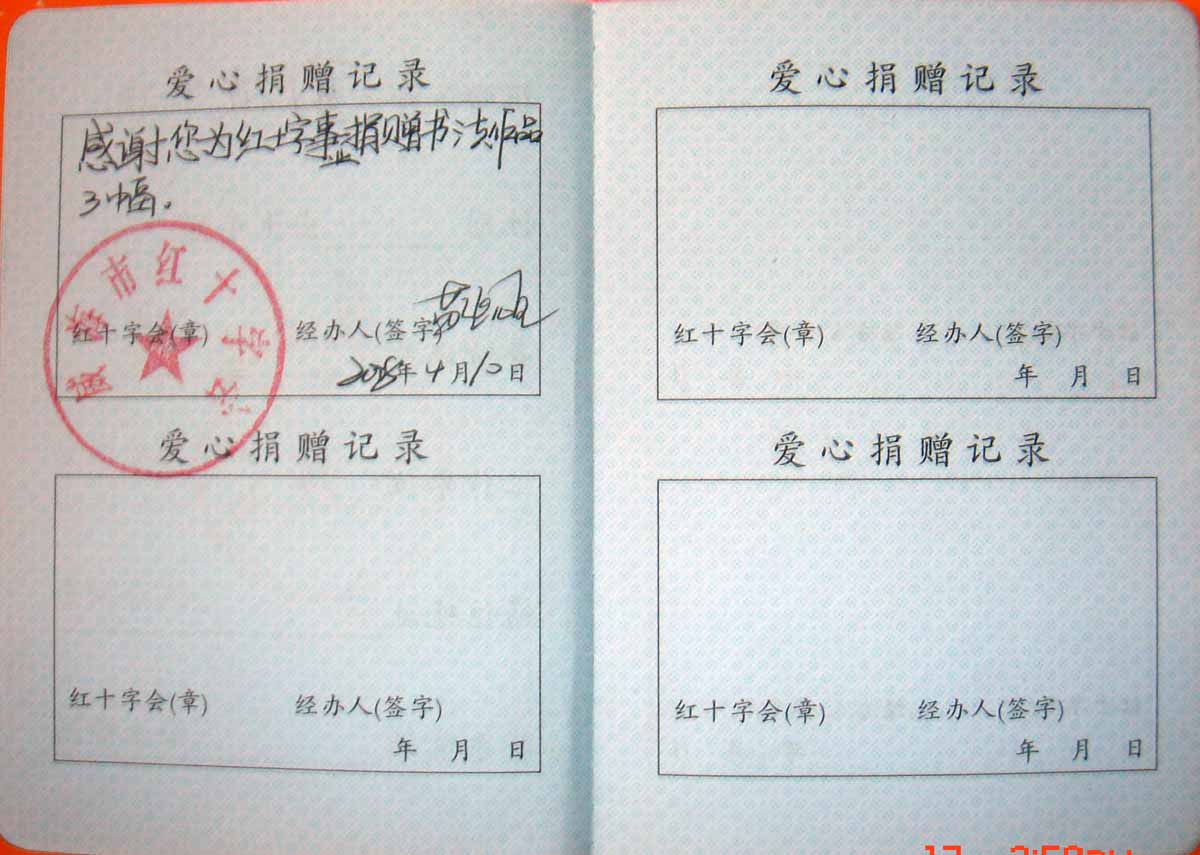 爱心捐赠记录
感谢您为红十字事业捐赠书法作品
3幅。
市红十字会
红十字会(章) 经办人(签字)
年4月10日
爱心捐赠记录
红十字会(章) 经办人(签字)
年 月 日
爱心捐赠记录
红十字会(章) 经办人(签字)
年 月 日
爱心捐赠记录
红十字会(章) 经办人(签字)
年 月 日